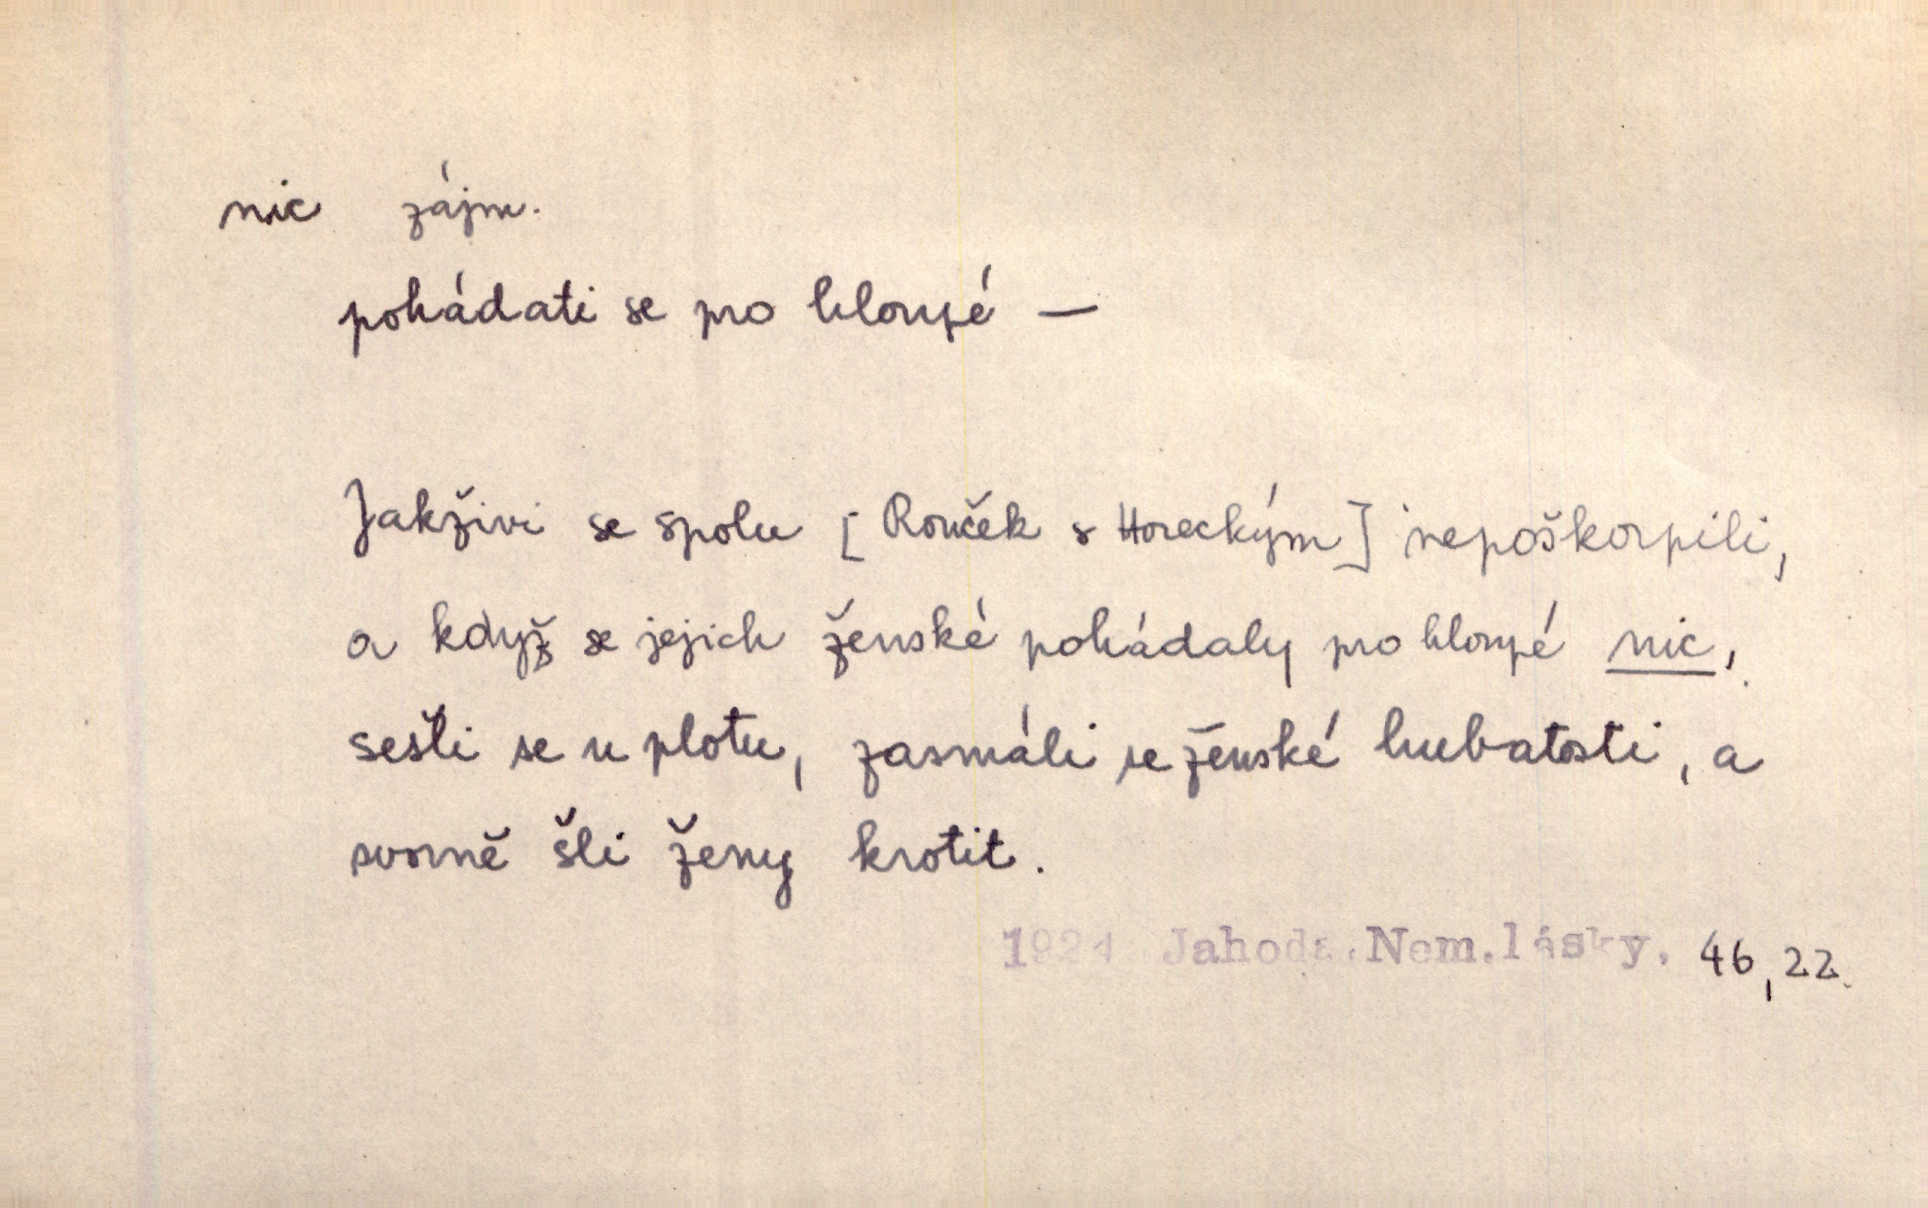 nic zájm.
pohádati se pro hloupé —
Jakživi se spolu [Rouček s Horeckým] nepoškorpili,
a když se jejich ženské pohádaly pro hloupé nic,
sešli se u plotu, zasmáli se ženské hubatosti, a
svorně šli ženy krotit.
1924 Jahoda.Nem.lásky. 46,22